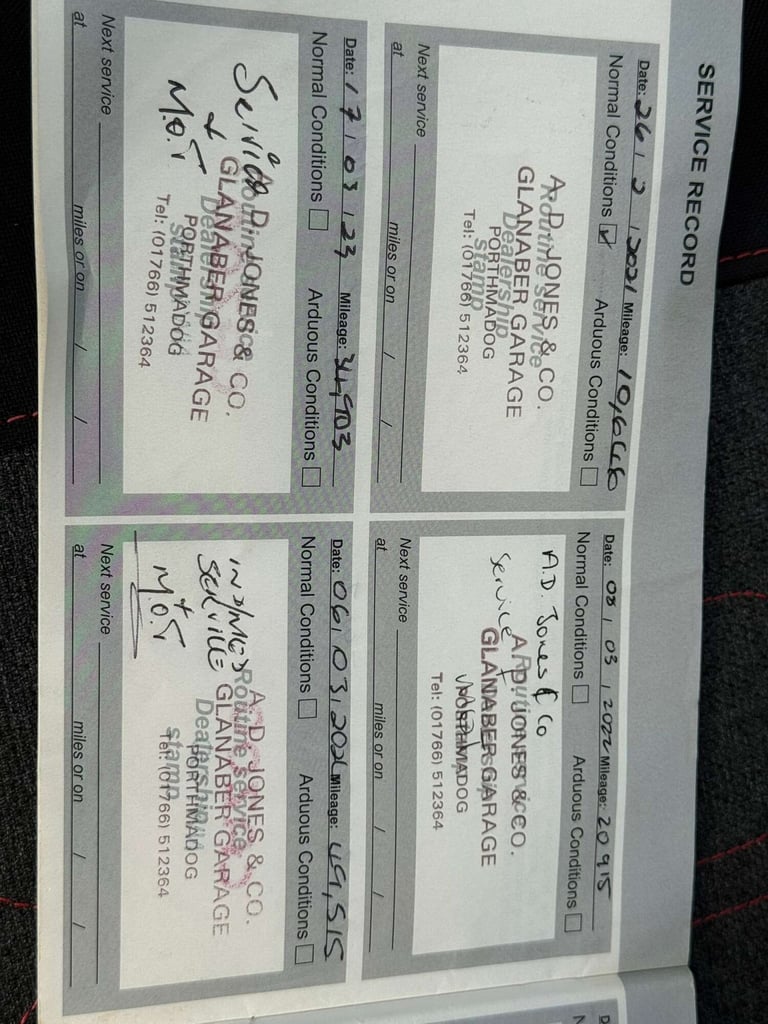 SERVICE RECORD
Date: 26 / 2 / 2021 Mileage: 10,648
Normal Conditions ☑ Arduous Conditions ☐
A. D. JONES & CO.
Routine service
GLANABER GARAGE
Dealership
PORTHMADOG
stamp
Tel: (01766) 512364
Next service
at miles or on / /
Date: 08 / 03 / 2022 Mileage: 20915
Normal Conditions ☐ Arduous Conditions ☐
A.D. Jones & Co
A. D. JONES & CO.
Service
GLANABER GARAGE
PORTHMADOG
Tel: (01766) 512364
Next service
at miles or on / /
Date: 17 / 03 / 23 Mileage: 34,903
Normal Conditions ☐ Arduous Conditions ☐
Service
+
M.O.T
A. D. JONES & CO.
Routine service
GLANABER GARAGE
Dealership
PORTHMADOG
stamp
Tel: (01766) 512364
Next service
at miles or on / /
Date: 06 / 03 / Mileage: 49,515
Normal Conditions ☐ Arduous Conditions ☐
Service
+
M.O.T
A. D. JONES & CO.
Routine service
GLANABER GARAGE
Dealership
PORTHMADOG
stamp
Tel: (01766) 512364
Next service
at miles or on / /